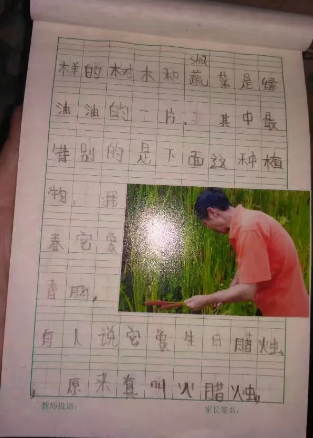 shū
样的树木和蔬菜是绿
油油的一片，其中最
特别的是下面这种植
物，我
看它象
香肠，
有人说它象生日腊烛，
原来真叫火腊烛。
教师批语： 家长签名：